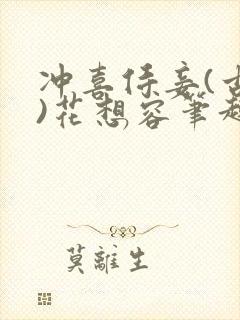 冲喜侍妾(古
)花想容笔趣
莫離生